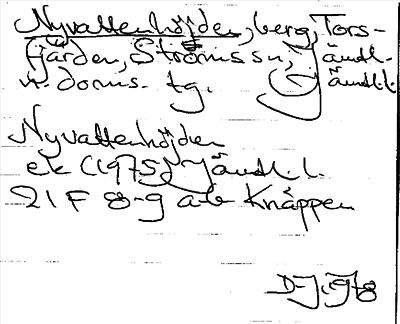 Nyvattenhöjden, berg, Tors-
fjärden, Ströms sn, Jämtl.
n. doms. tg. Jämtl.l.
Nyvattenhöjden
ek (1975) Jämtl. l.
21 F 8-9 a-b Knäppen
D-J. 1978